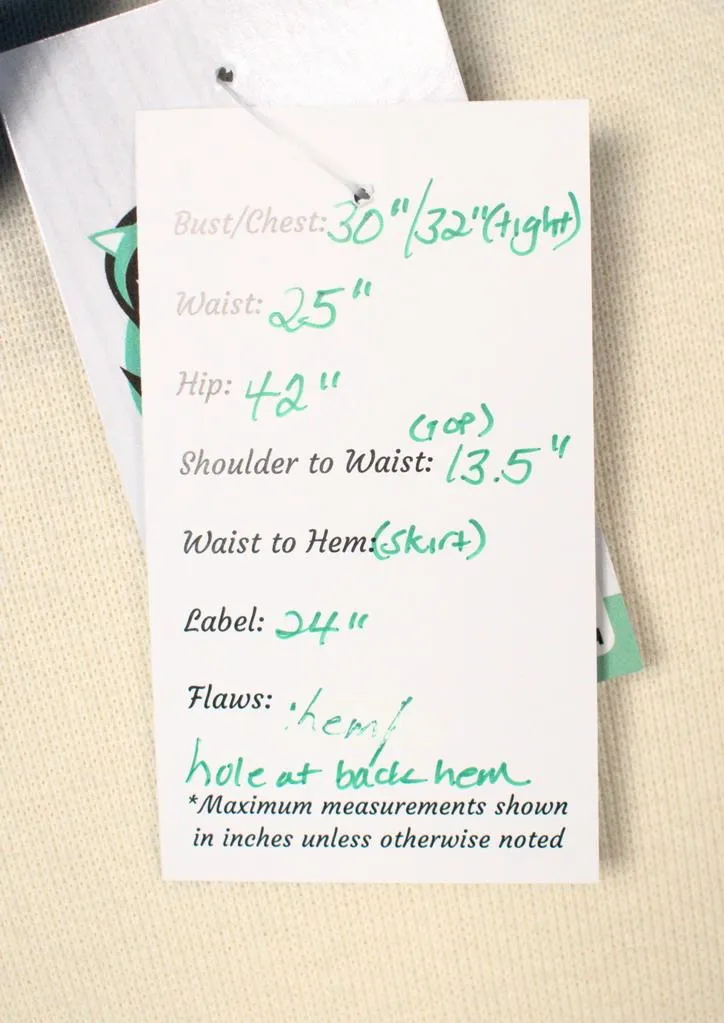 Bust/Chest: 30"/32"(tight)
Waist: 25"
Hip: 42"
(TOP)
Shoulder to Waist: 13.5"
Waist to Hem: (skirt)
Label: 24"
Flaws: hem/
hole at back hem
*Maximum measurements shown
in inches unless otherwise noted